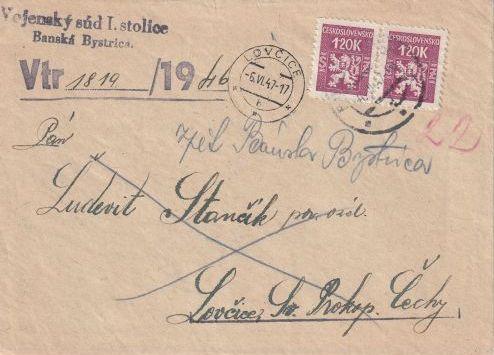 Vojenský súd I. stolice
Banská Bystrica.
Vtr 1819 /1946
LOVČICE
-6.VI.47-17
h
ČESKOSLOVENSKO
1·20K
ČESKOSLOVENSKO
1·20K
22
Pán
zpět Bánska Bystrica
Ludevit Stančík
Lovčice Sv. Prokop. Čechy